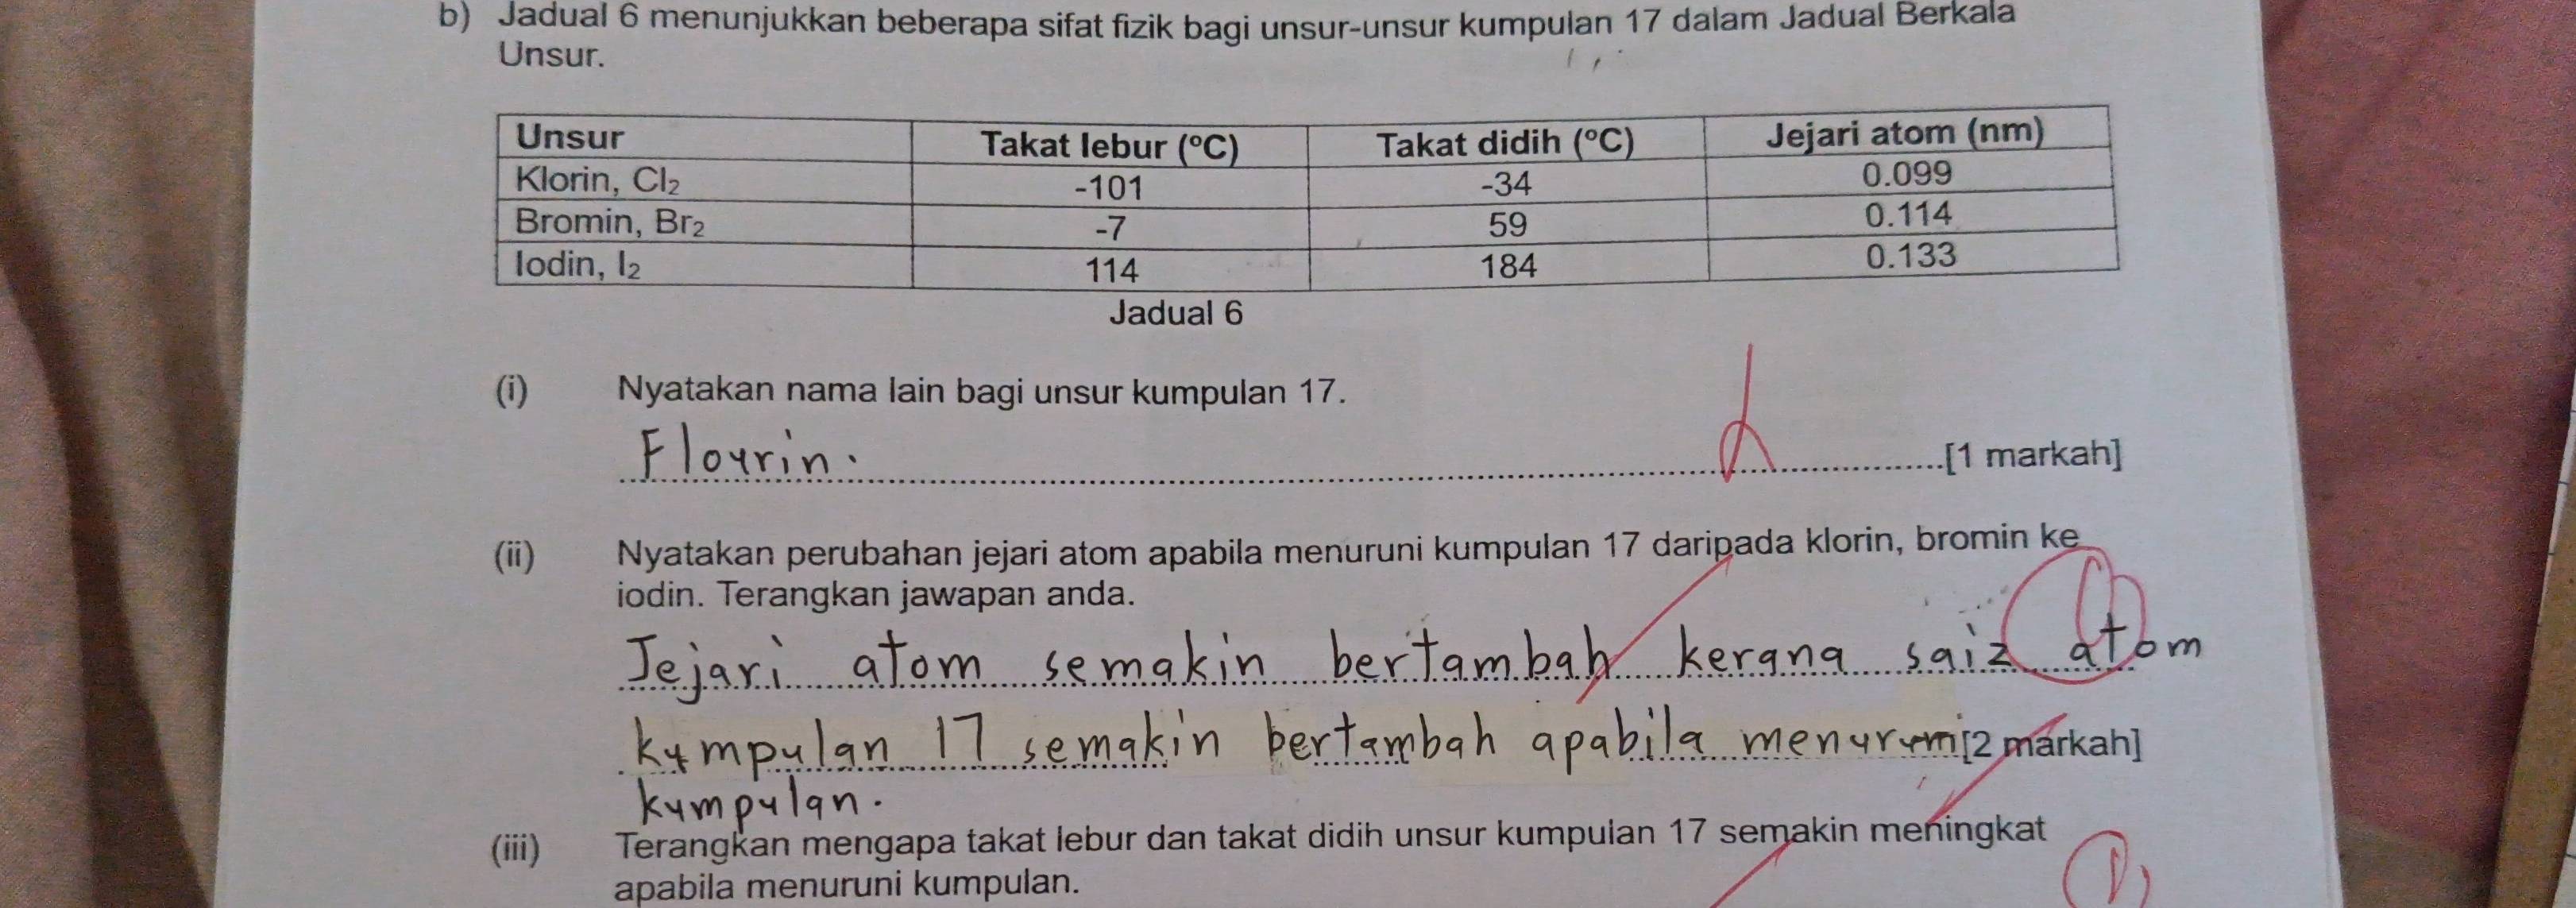 b) Jadual 6 menunjukkan beberapa sifat fizik bagi unsur-unsur kumpulan 17 dalam Jadual Berkala
Unsur.
Unsur Takat lebur (°C) Takat didih (°C) Jejari atom (nm)
Klorin, Cl₂ -101 -34 0.099
Bromin, Br₂ -7 59 0.114
Iodin, I₂ 114 184 0.133
Jadual 6
(i) Nyatakan nama lain bagi unsur kumpulan 17.
Flourin.
[1 markah]
(ii) Nyatakan perubahan jejari atom apabila menuruni kumpulan 17 daripada klorin, bromin ke
iodin. Terangkan jawapan anda.
Jejari atom semakin bertambah kerana saiz atom
kumpulan 17 semakin bertambah apabila menuruni [2 markah]
kumpulan.
(iii) Terangkan mengapa takat lebur dan takat didih unsur kumpulan 17 semakin meningkat
apabila menuruni kumpulan.